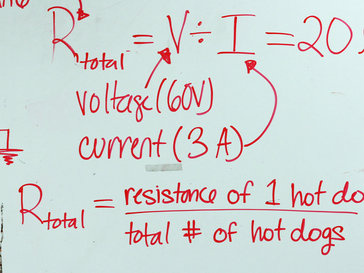 R total = V ÷ I = 20
voltage (60V)
current (3 A)
R total = resistance of 1 hot do
total # of hot dogs